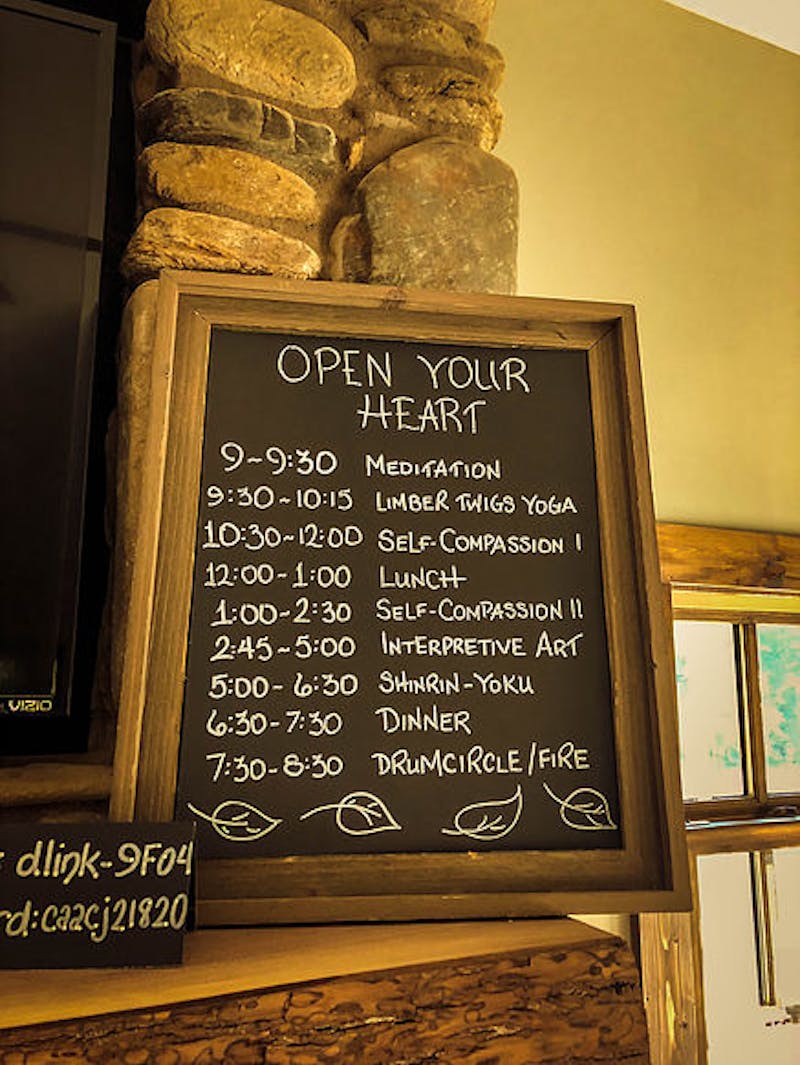 OPEN YOUR
HEART
9~9:30 MEDITATION
9:30~10:15 LIMBER TWIGS YOGA
10:30~12:00 SELF-COMPASSION I
12:00-1:00 LUNCH
1:00-2:30 SELF-COMPASSION II
2:45~5:00 INTERPRETIVE ART
5:00-6:30 SHINRIN-YOKU
6:30-7:30 DINNER
7:30-8:30 DRUMCIRCLE/FIRE
VIZIO
: dlink-9F04
rd:caacj21820